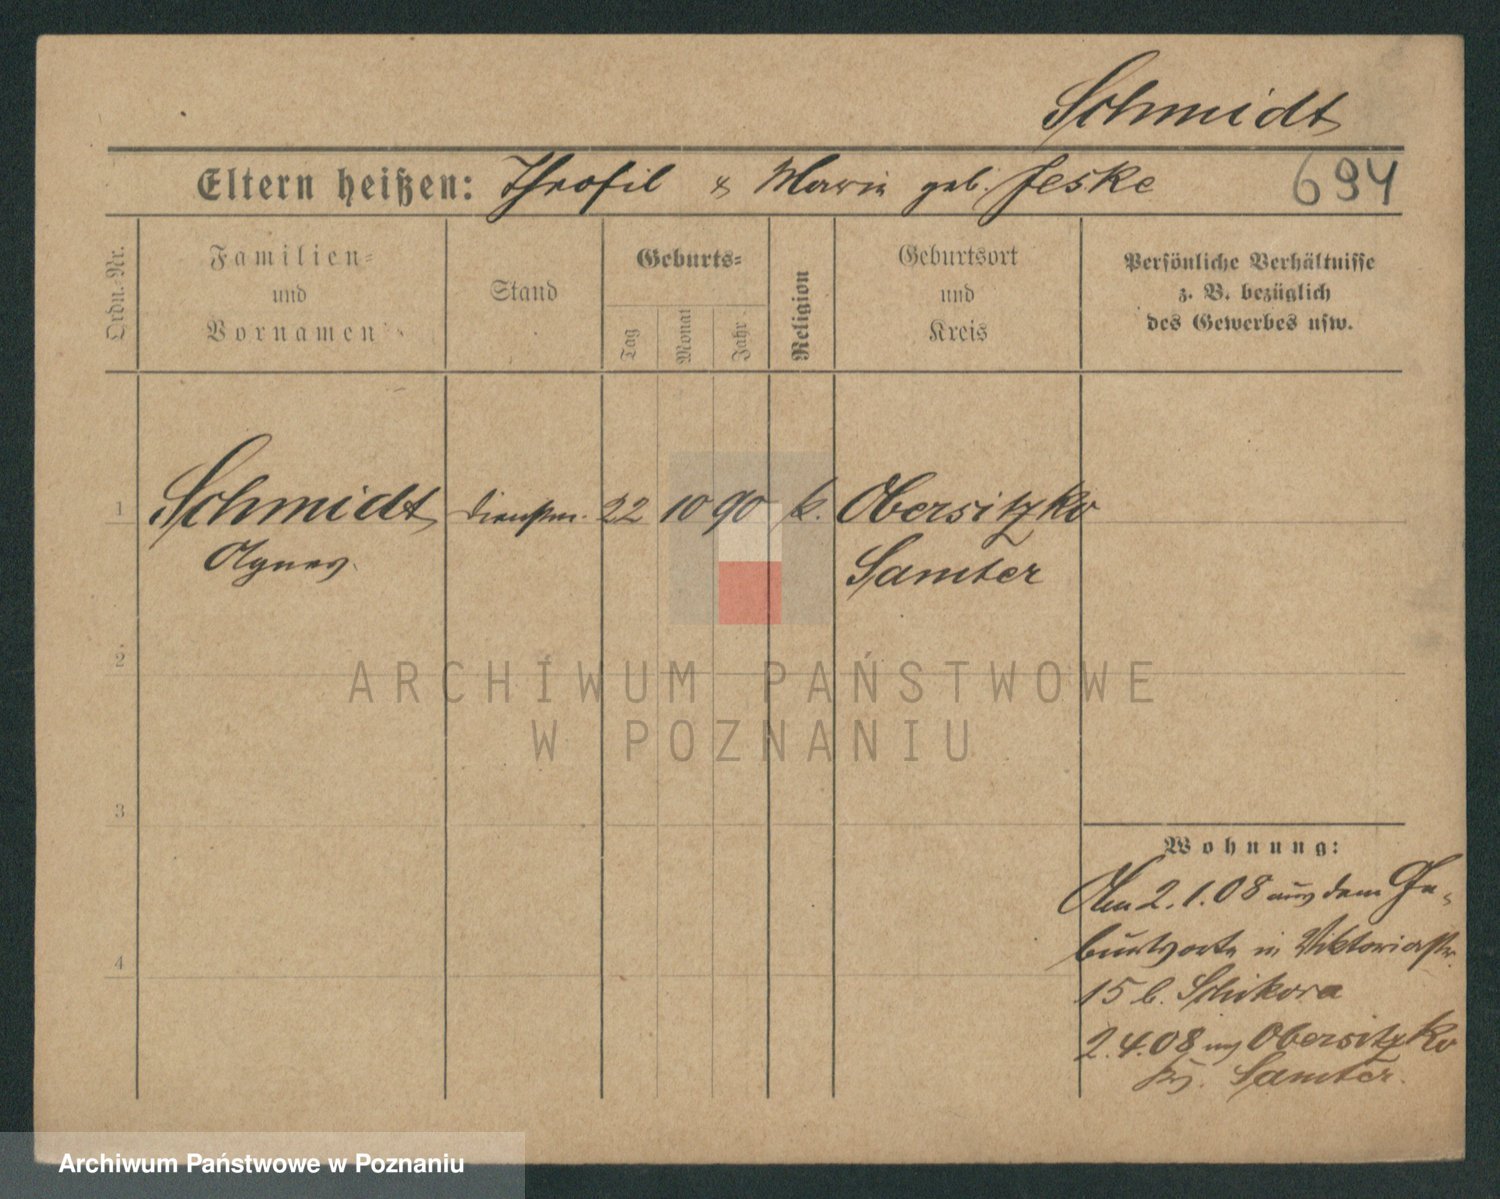 Schmidt
Eltern heißen: Theofil & Maria geb. Jeske
694
Ordn.-Nr.
Familien-
und
Vornamen
Stand
Geburts-
Tag
Monat
Jahr
Religion
Geburtsort
und
Kreis
Persönliche Verhältnisse
z. B. bezüglich
des Gewerbes usw.
1 Schmidt Dienstm. 22 10 90 k. Obersitzko
Agnes. Samter
2
ARCHIWUM PAŃSTWOWE
W POZNANIU
3
Wohnung:
Am 2.1.08 aus dem Ge-
burtsorte in Viktoriastr.
4
15 b. Schikora
2.4.08 n. Obersitzko
Krs. Samter.
Archiwum Państwowe w Poznaniu